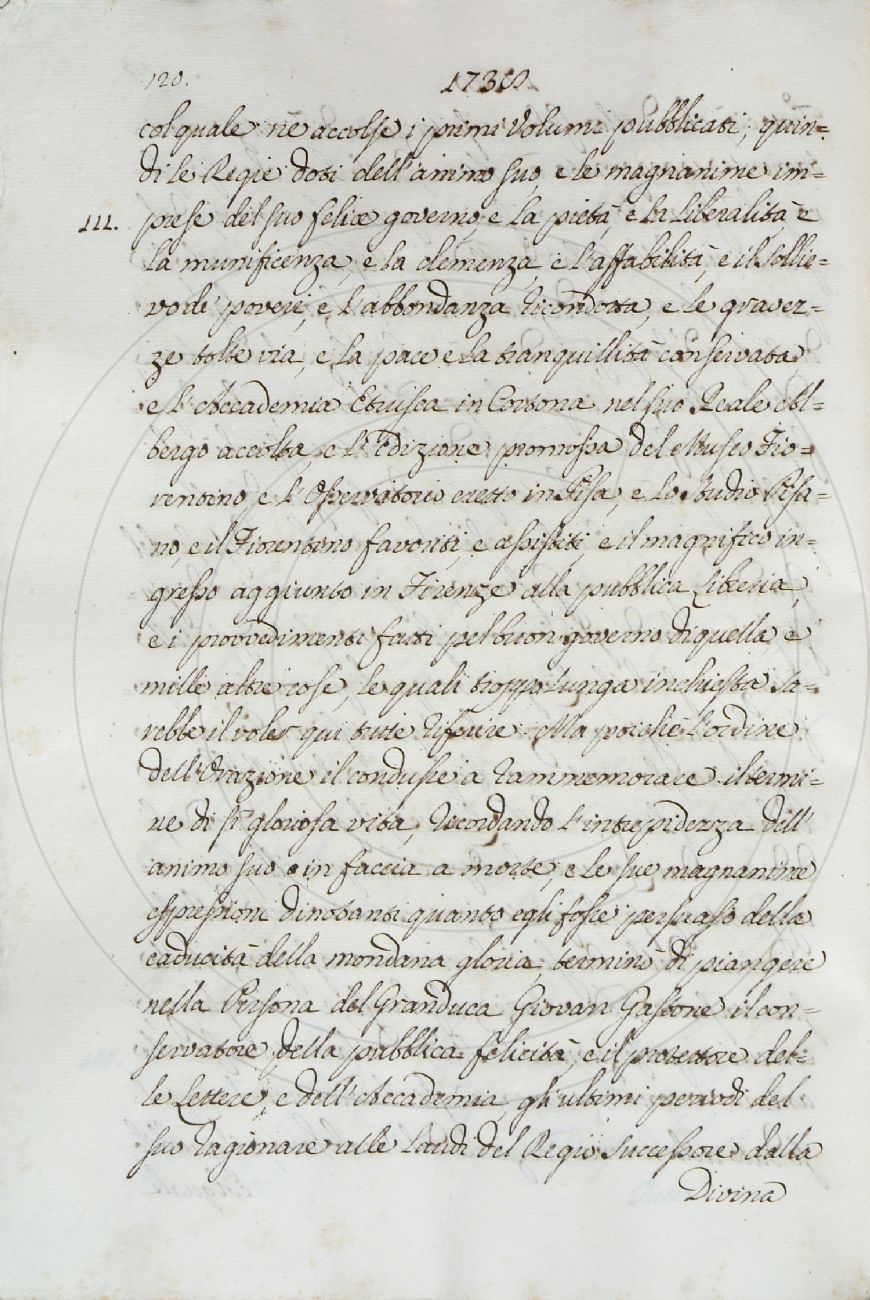 120.
1738.
col quale ne accolse i primi Volumi pubblicati; quin=
di le Regie doti dell'animo suo, e le magnanime im=
III. prese del suo felice governo, e la pietà, e la liberalità, e
la munificenza, e la clemenza, e l'affabilità, e il sollie=
vo de' poveri, e l'abbondanza ricondotta, e le gravez=
ze tolte via, e la pace e la tranquillità conservata
e l'Accademia Etrusca in Cortona nel suo Reale Al=
bergo accolta, e l'Edizione promossa del Museo Fio=
rentino e l'Osservatorio eretto in Pisa, e lo studio Pisa=
no, e il Fiorentino favoriti, e assistiti, e il magnifico in=
gresso aggiunto in Firenze alla pubblica Libreria,
e i provvedimenti fatti pel buon governo di quella e
mille altre cose, le quali troppo lunga inchiesta sa=
rebbe il voler qui tutte riferire. Ma poichè l'ordine
dell'Orazione il condusse a rammemorare il termi=
ne di sì gloriosa vita, ricordando l'intrepidezza dell'
animo suo in faccia a morte, e le sue magnanime
espressioni dinotanti quanto egli fosse persuaso della
caducità della mondana gloria, terminò di piangere
nella Persona del Granduca Giovan Gastone il con=
servatore della pubblica felicità, e il protettore del=
le Lettere, e dell'Accademia gli ultimi periodi del
suo ragionare alle laudi del Regio Successore dalla
Divina